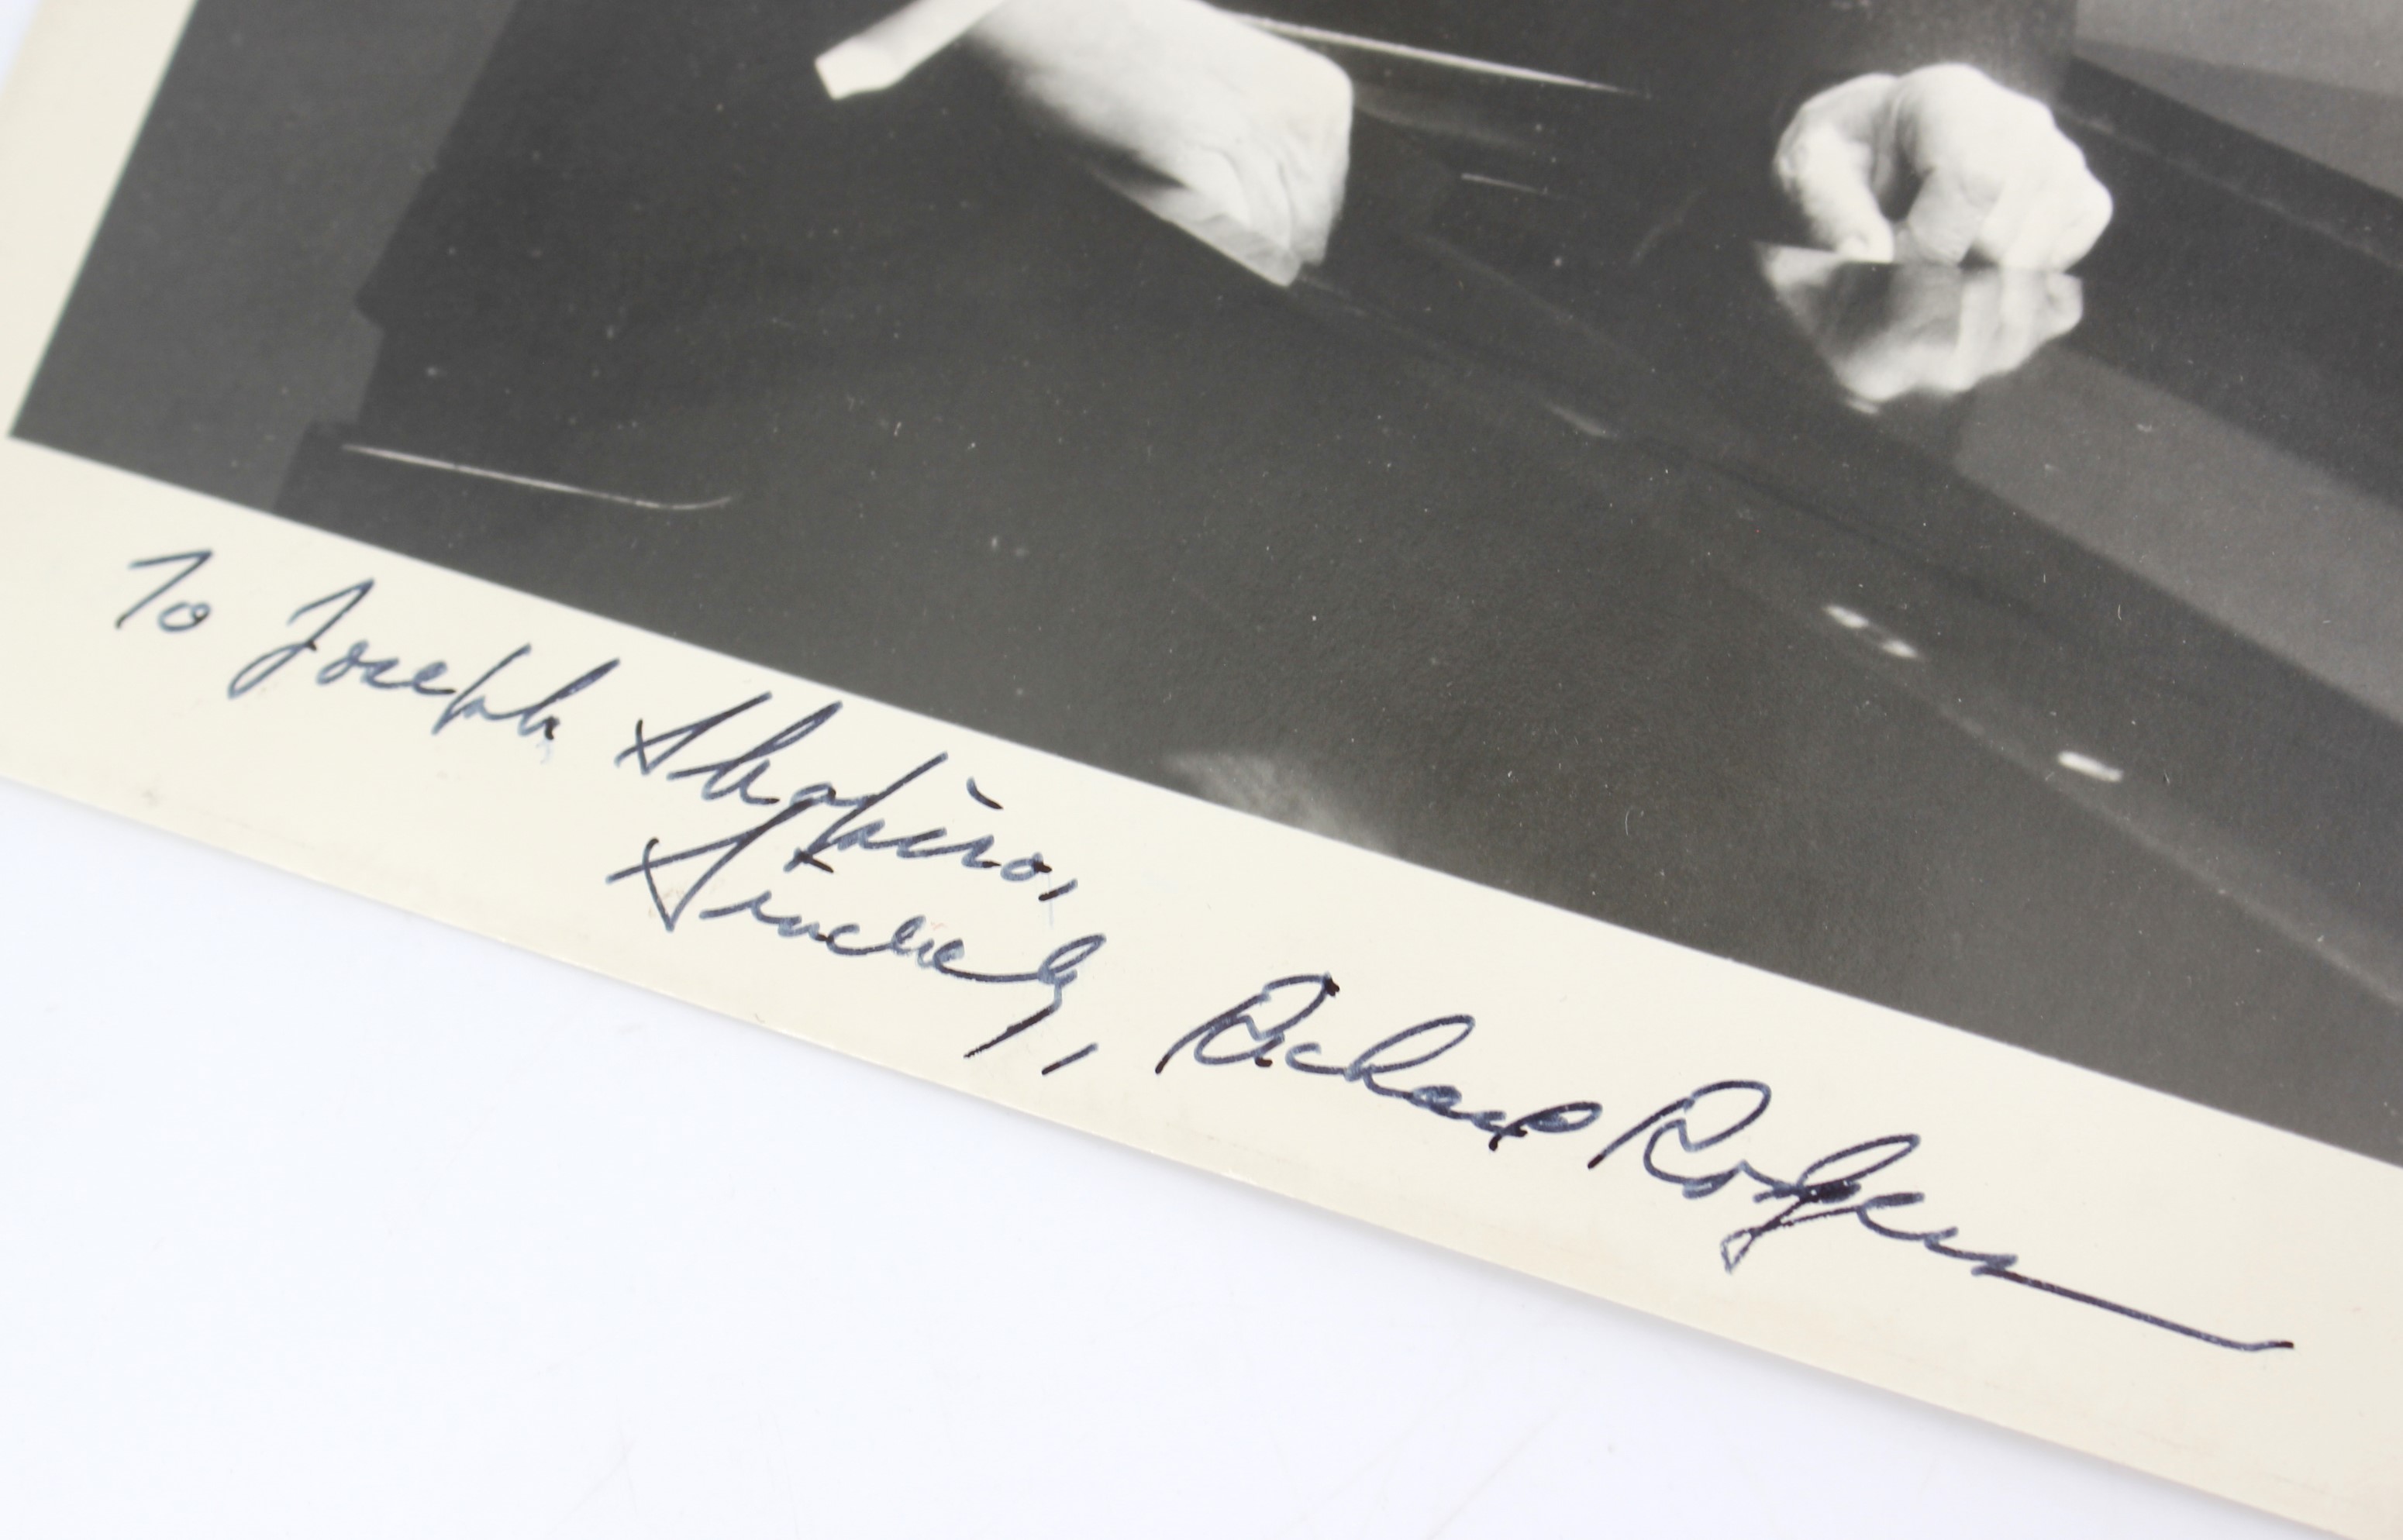 To Joseph Shapiro,
Sincerely, Richard Rodgers